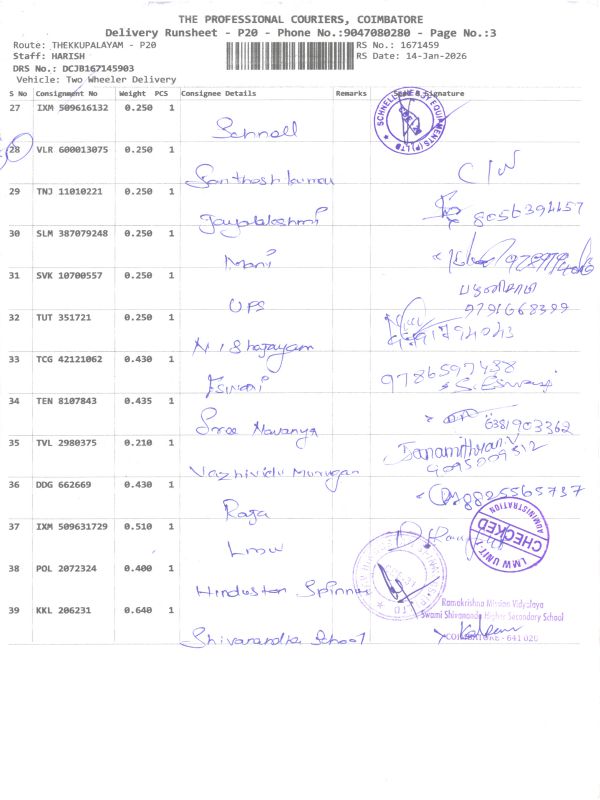 THE PROFESSIONAL COURIERS, COIMBATORE
Delivery Runsheet - P20 - Phone No.:9047080280 - Page No.:3
Route: THEKKUPALAYAM - P20
RS No.: 1671459
Staff: HARISH
RS Date: 14-Jan-2026
DRS No.: DCJB167145903
Vehicle: Two Wheeler Delivery
S No Consignment No Weight PCS Consignee Details Remarks Seal & Signature
27 IXM 509616132 0.250 1
Schnell
SCHNELL ENERGY EQUIPMENTS (P) LTD
28 VLR 600013075 0.250 1
Santhosh kumar
29 TNJ 11010221 0.250 1
Jayalakshmi
8056394457
30 SLM 387079248 0.250 1
Mani
31 SVK 10700557 0.250 1
UPS
9791668399
32 TUT 351721 0.250 1
33 TCG 42121062 0.430 1
Eswari
9786597438
S. Eswari
34 TEN 8107843 0.435 1
Sree Navanya
6381903362
35 TVL 2980375 0.210 1
Vazhividu Murugan
36 DDG 662669 0.430 1
Raja
8825565737
37 IXM 509631729 0.510 1
LMW
LMW UNIT
CHECKED
ADMINISTRATION
38 POL 2072324 0.400 1
Hindustan Spinners
39 KKL 206231 0.640 1
Shivanandha School
Ramakrishna Mission Vidyalaya
Swami Shivananda Higher Secondary School
COIMBATORE - 641 020